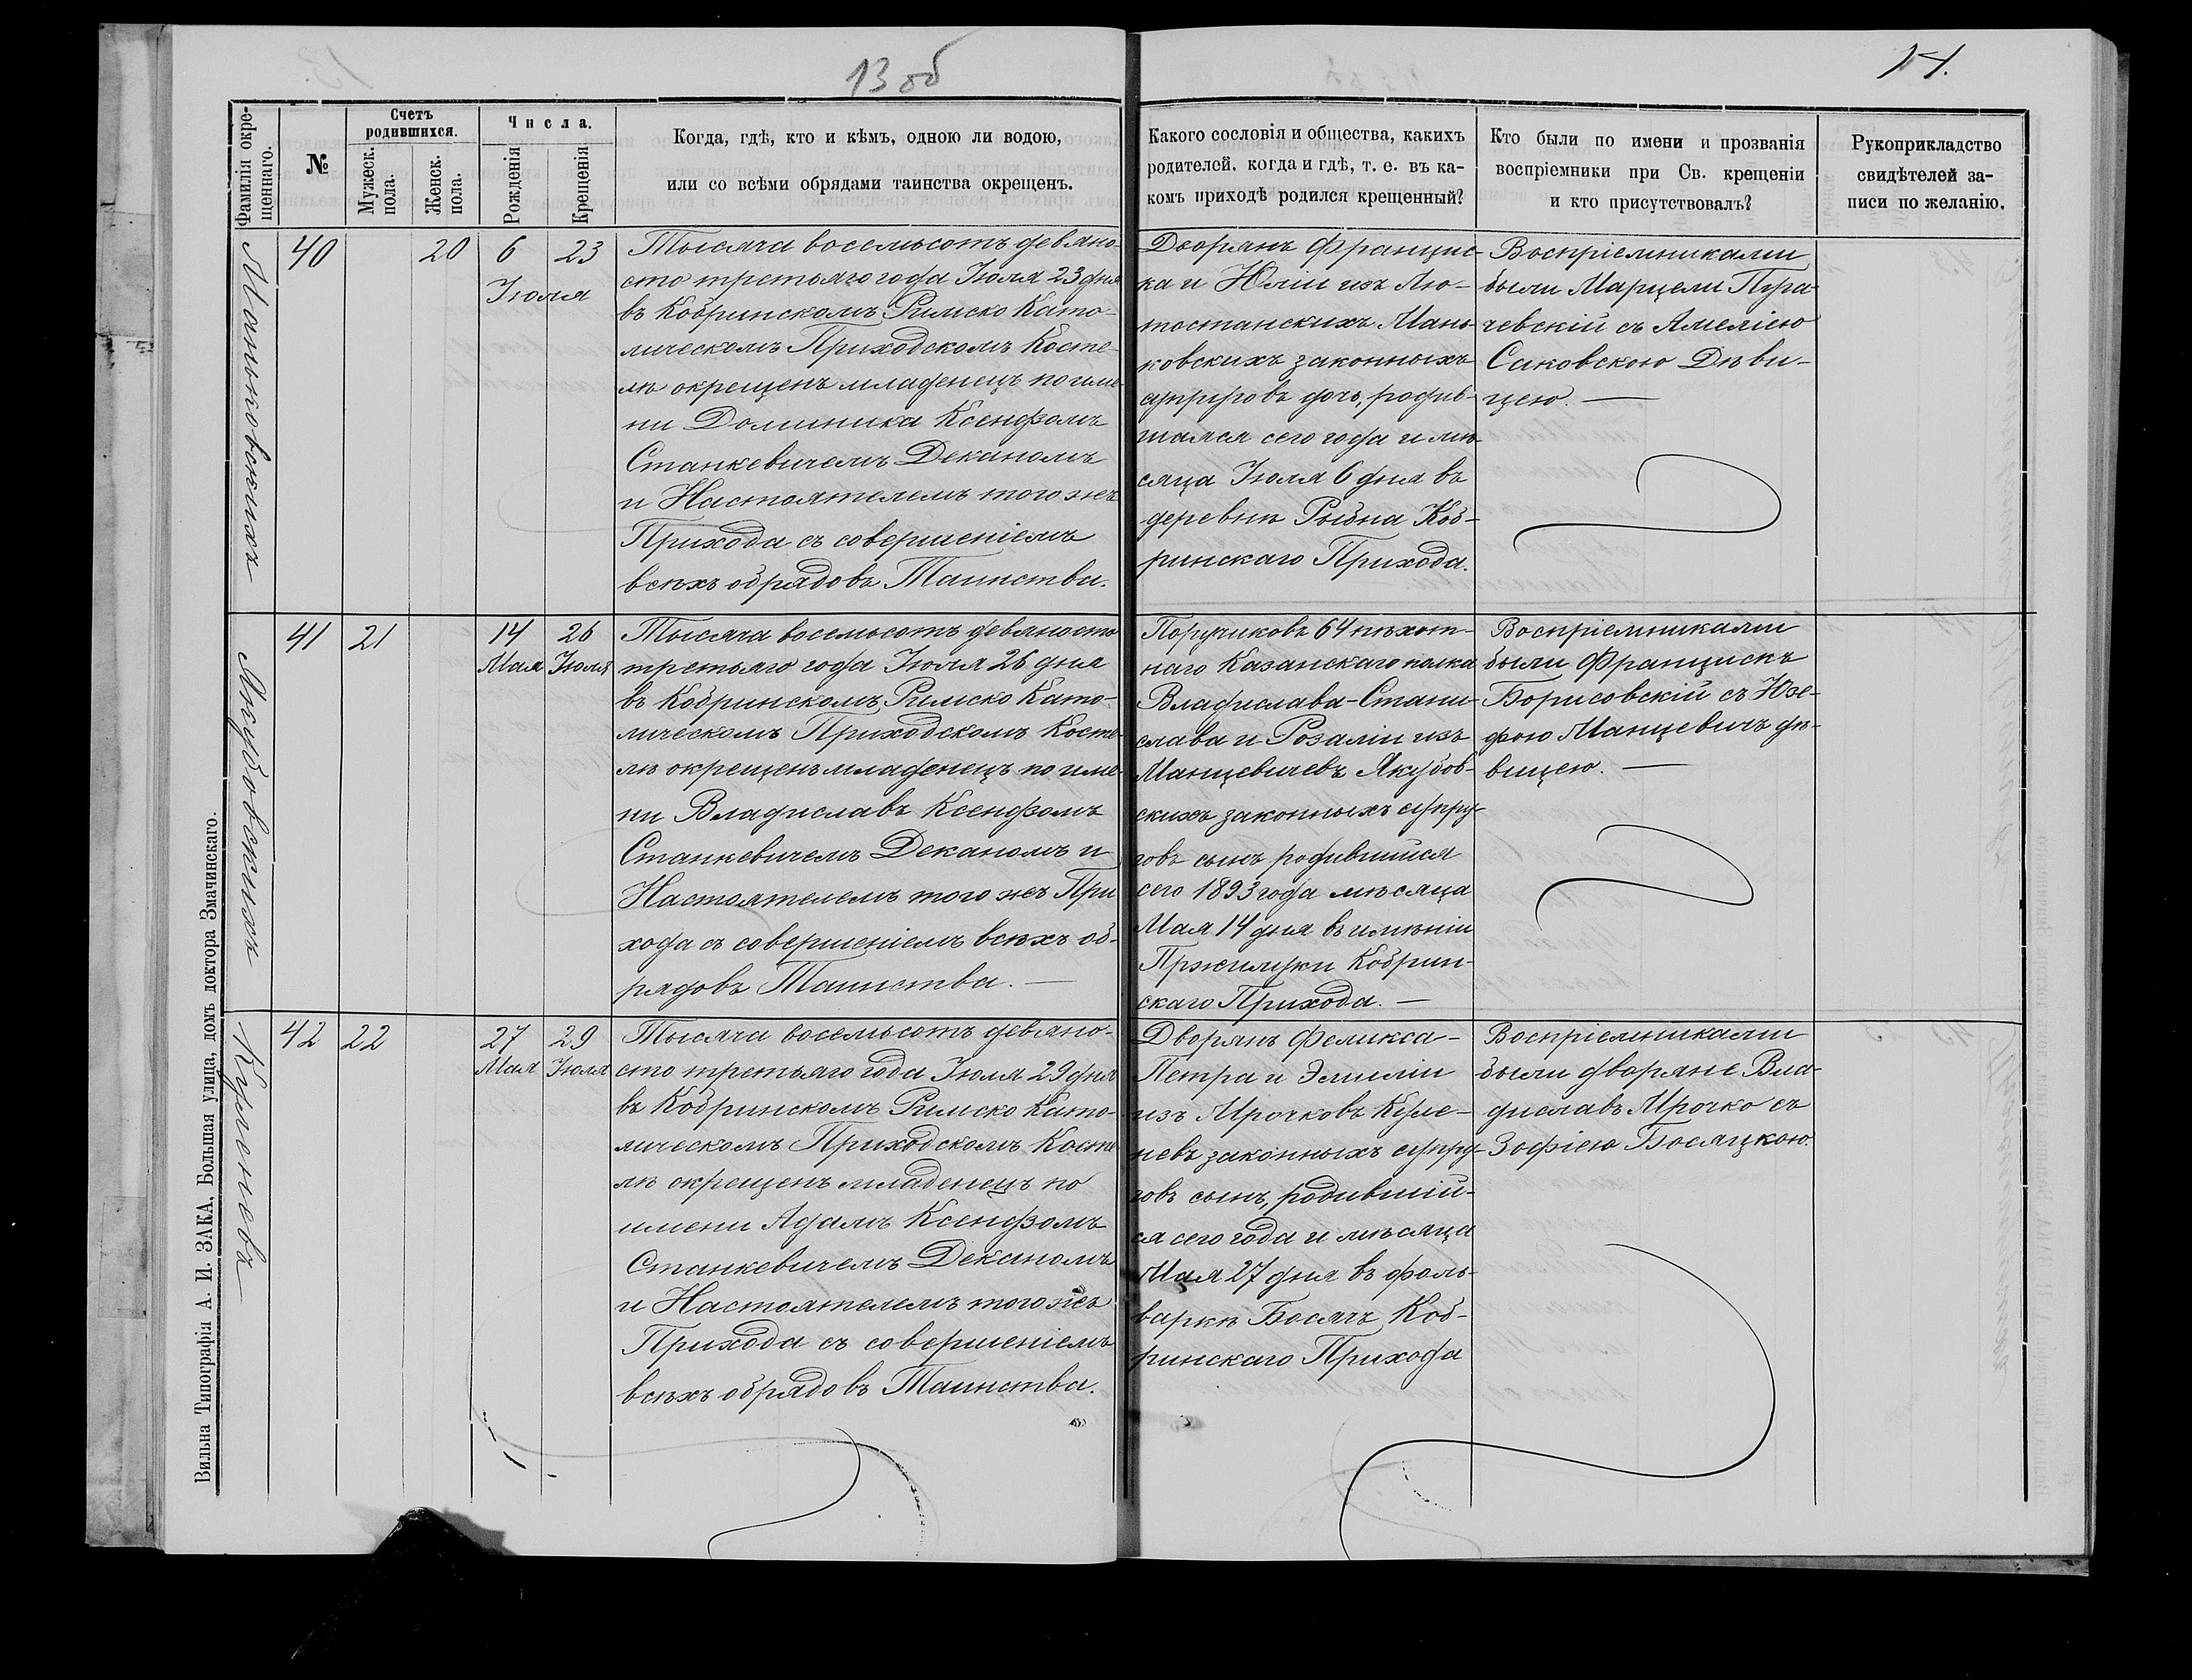 13 об
14.
Фамилія окре-
щеннаго.
№
Счетъ
родившихся.
Мужеск.
пола.
Женск.
пола.
Числа.
Рожденія
Крещенія
Когда, гдѣ, кто и кѣмъ, одною ли водою,
или со всѣми обрядами таинства окрещенъ.
Какого сословія и общества, какихъ
родителей. когда и гдѣ, т. е. въ ка-
комъ приходѣ родился крещенный?
Кто были по имени и прозванія
воспріемники при Св. крещеніи
и кто присутствовалъ?
Рукоприкладство
свидѣтелей за-
писи по желанію.
Маньковскихъ
40
20
6
23
Іюля
Тысяча восемьсотъ девяно-
сто третьяго года Іюля 23 дня
въ Кобринскомъ Римско Като-
лическомъ Приходскомъ Косте-
лѣ окрещенъ младенецъ по име-
ни Доминика Ксендзомъ
Станкевичемъ Деканомъ
и Настоятелемъ того же
Прихода съ совершеніемъ
всѣхъ обрядовъ Таинства.
Дворянъ Францис-
ка и Юліи изъ Лю-
тостанскихъ Мань-
ковскихъ законныхъ
супруговъ дочь, родив-
шаяся сего года и мѣ-
сяца Іюля 6 дня въ
деревнѣ Рыбна Коб-
ринскаго Прихода.
Воспріемниками
были Марцели Пуга-
чевскій съ Амеліею
Саковскою Дѣви-
цею. —
Якубовскихъ
41
21
14
Мая
26
Іюля
Тысяча восемьсотъ девяносто
третьяго года Іюля 26 дня
въ Кобринскомъ Римско Като-
лическомъ Приходскомъ Косте-
лѣ окрещенъ младенецъ по име-
ни Владиславъ Ксендзомъ
Станкевичемъ Деканомъ и
Настоятелемъ того же При
хода съ совершеніемъ всѣхъ об-
рядовъ Таинства. —
Поручиковъ 64 пѣхот-
наго Казанскаго полка
Владислава-Стани-
слава и Розаліи изъ
Манцевичевъ Якубов-
скихъ законныхъ супру-
говъ сынъ родившійся
сего 1893 года мѣсяца
Мая 14 дня въ имѣніи
Пржилуки Кобрин-
скаго Прихода. —
Воспріемниками
были Францискъ
Борисовскій съ Юзе-
фою Манцевичъ дѣ-
вицею. —
Куленевъ
42
22
27
Мая
29
Іюля
Тысяча восемьсотъ девяно-
сто третьяго года Іюля 29 дня
въ Кобринскомъ Римско Като-
лическомъ Приходскомъ Косте
лѣ окрещенъ младенецъ по
имени Адамъ Ксендзомъ
Станкевичемъ Деканомъ
и Настоятелемъ того же
Прихода съ совершеніемъ
всѣхъ обрядовъ Таинства.
Дворянъ Феликса-
Петра и Эмиліи
изъ Мрочковъ Куле-
невъ законныхъ супру-
говъ сынъ, родившій-
ся сего года и мѣсяца
Мая 27 дня въ фоль-
варкѣ Босячъ Коб-
ринскаго Прихода
Воспріемниками
были дворяне Вла-
диславъ Мрочко съ
Зофіею Босяцкою.
Вильна Типографія А. И. ЗАКА, Большая улица, домъ доктора Змачинскаго.